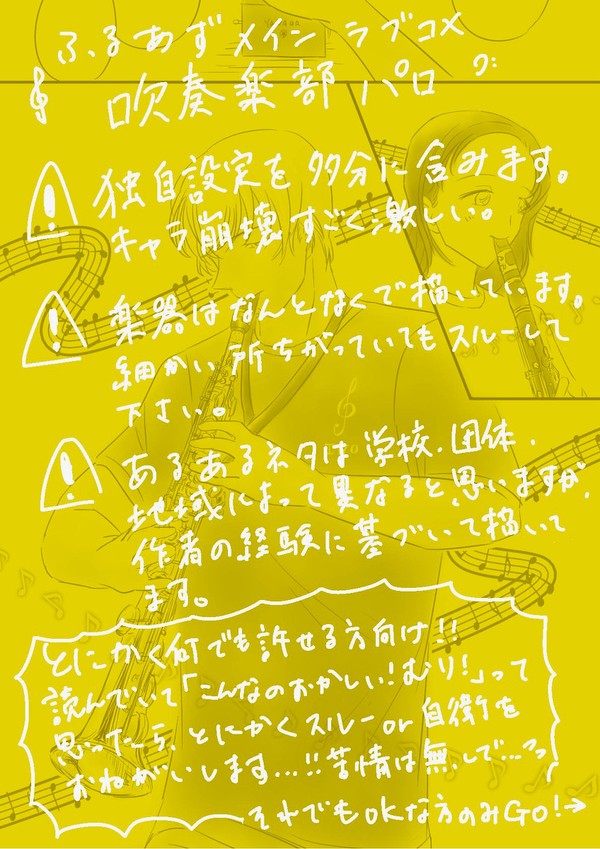 ふるあずメイン ラブコメ
吹奏楽部パロ
独自設定を多分に含みます。
キャラ崩壊すごく激しい。
楽器はなんとなくで描いています。
細かい所ちがっていてもスルーして
下さい。
あるあるネタは学校・団体・
地域によって異なると思いますが、
作者の経験に基づいて描いて
ます。
とにかく何でも許せる方向け!!
読んでいて「こんなのおかしい!むり!」って
思ったら、とにかくスルーor自衛を
おねがいします…!!苦情は無しで…っ
それでもOKな方のみGO!→